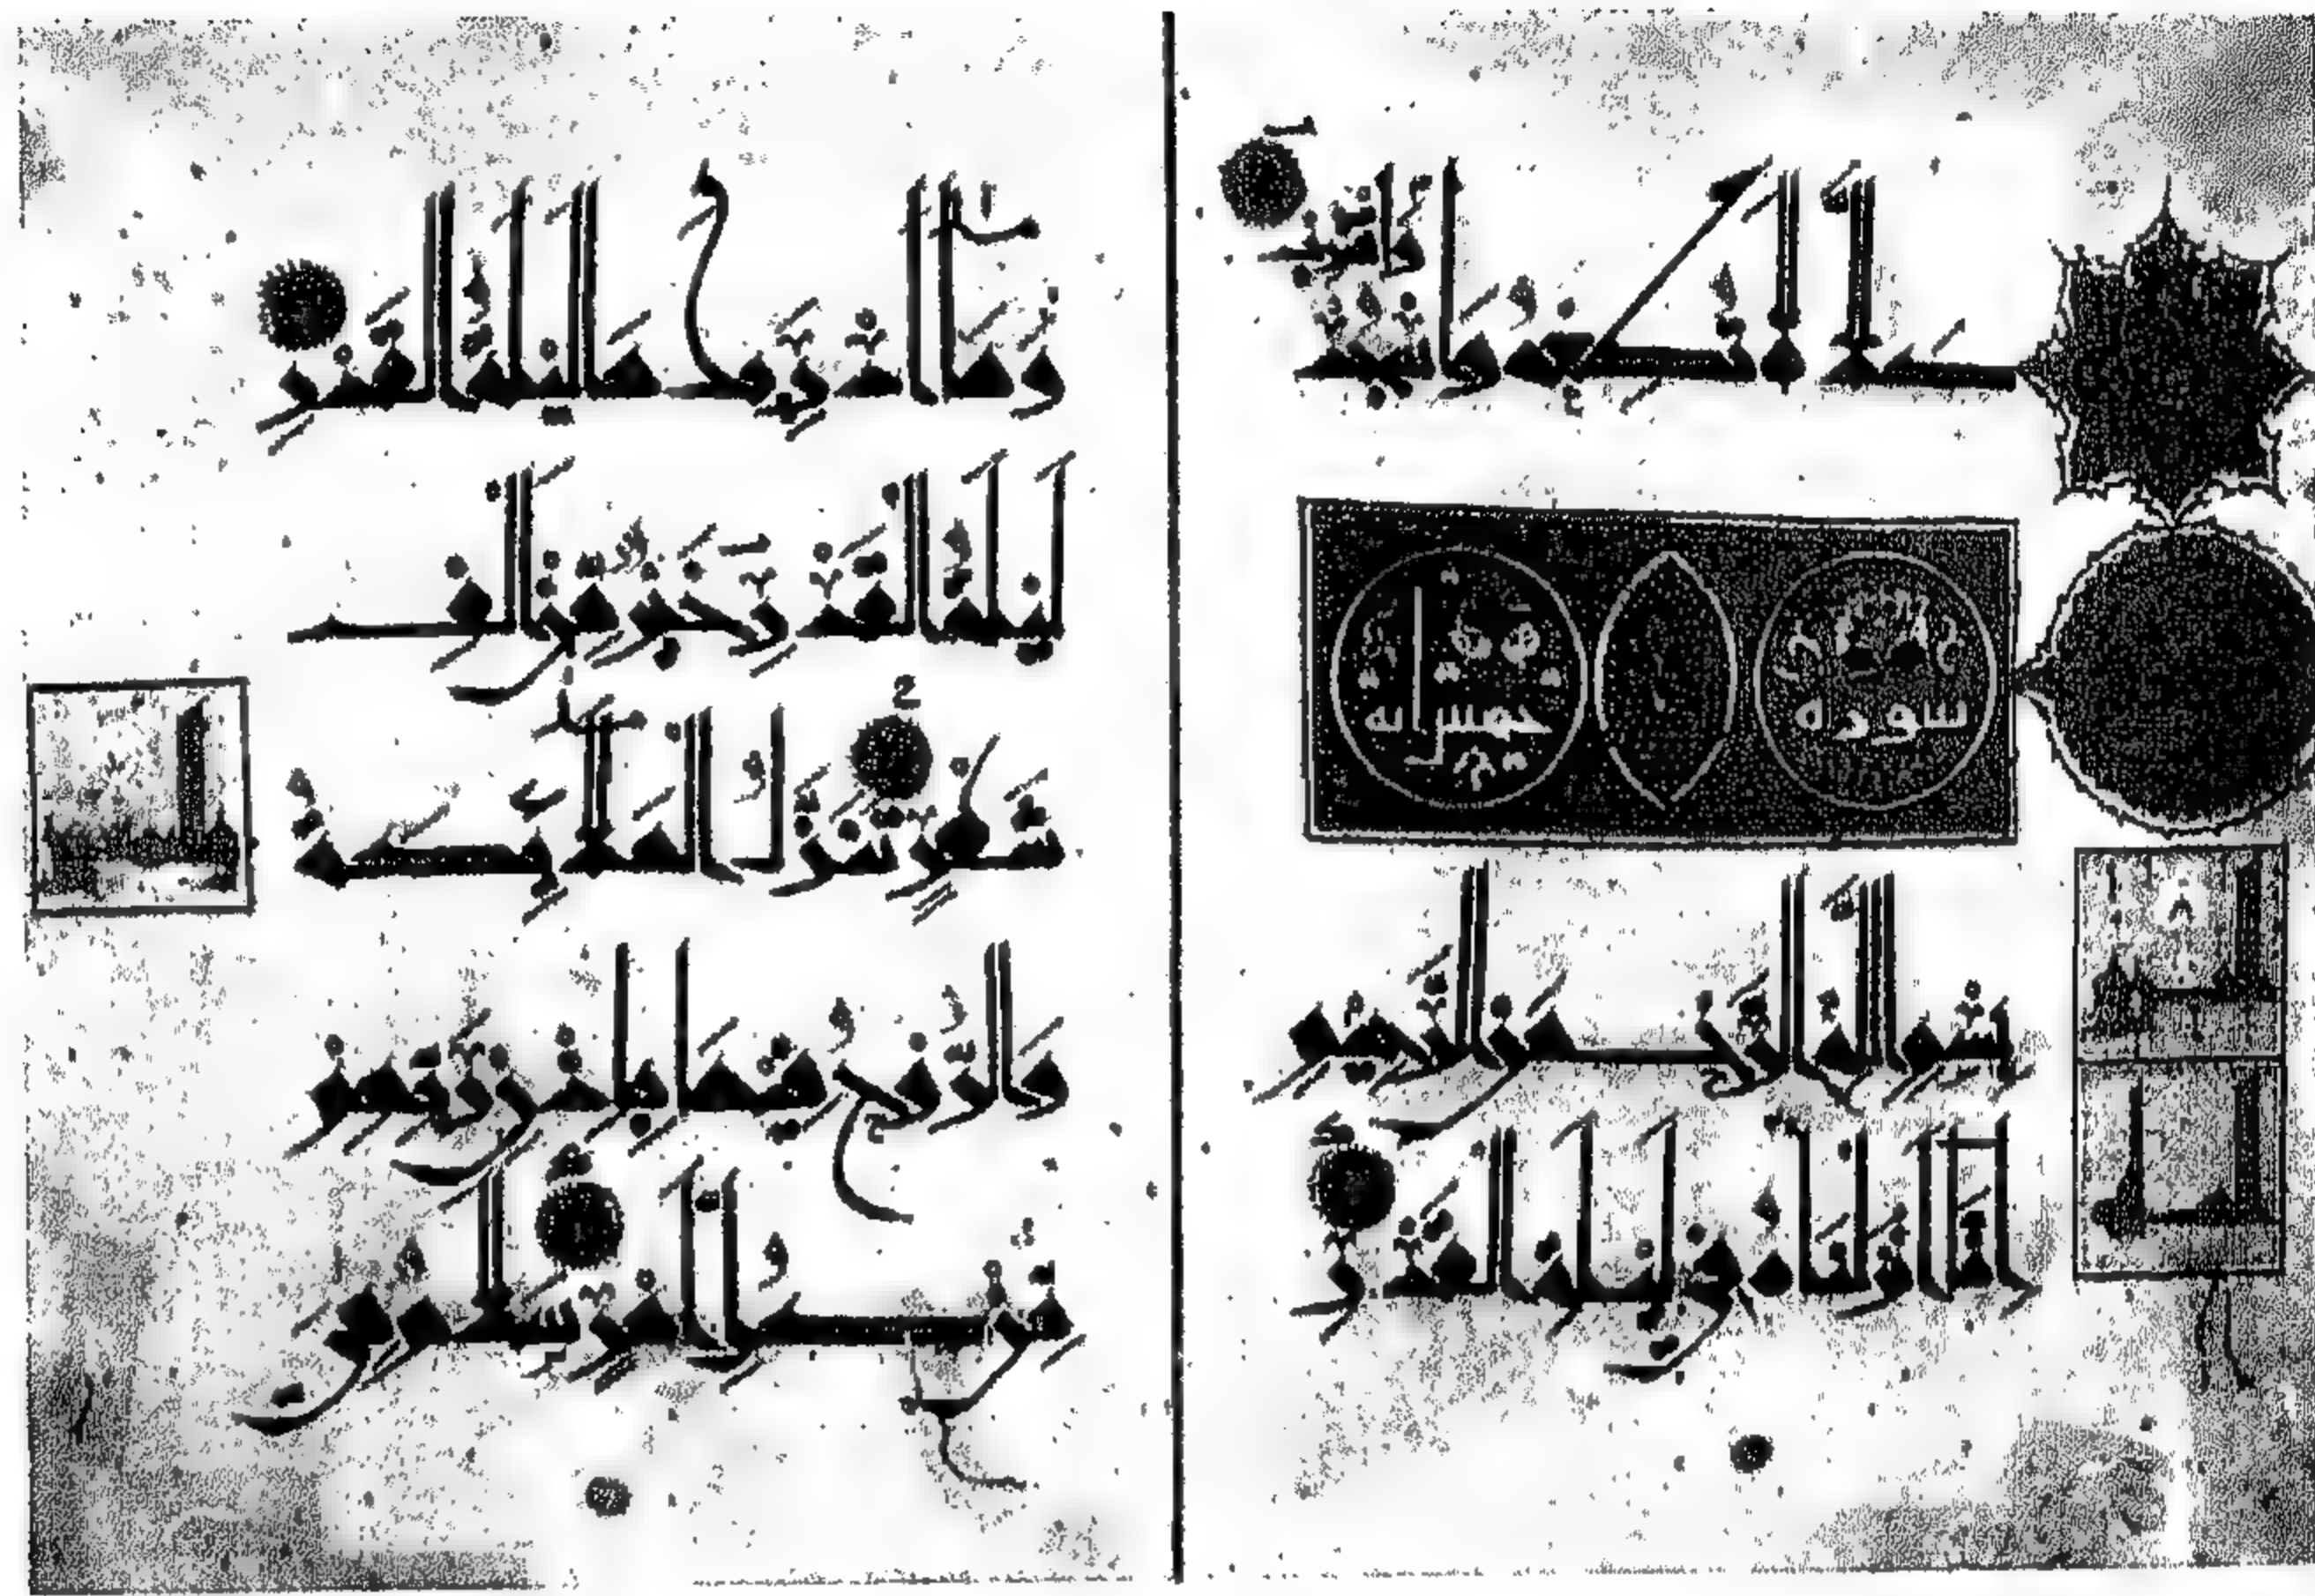 كَلَّا لَا تُطِعْهُ وَاسْجُدْ وَاقْتَرِبْ
سوره
خمس ايه
بِسْمِ اللَّهِ الرَّحْمَنِ الرَّحِيمِ
إِنَّا أَنْزَلْنَاهُ فِي لَيْلَةِ الْقَدْرِ
وَمَا أَدْرَيكَ مَا لَيْلَةُ الْقَدْرِ
لَيْلَةُ الْقَدْرِ خَيْرٌ مِنْ أَلْفِ
شَهْرٍ تَنَزَّلُ الْمَلَائِكَةُ
وَالرُّوحُ فِيهَا بِإِذْنِ رَبِّهِمْ مِنْ
كُلِّ أَمْرٍ سَلَامٌ هِيَ